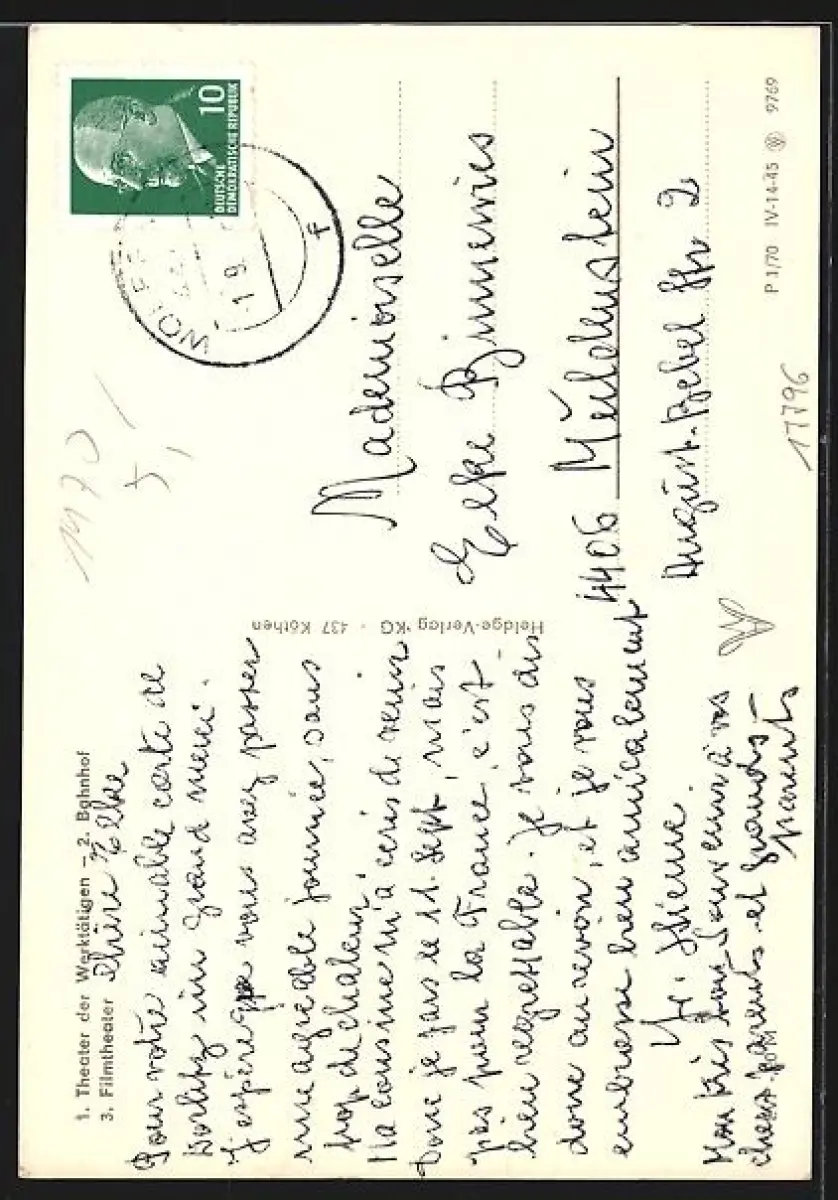 1. Theater der Werktätigen – 2. Bahnhof
3. Filmtheater
Chère Elke
Pour votre aimable carte de
Wörlitz un grand merci.
J'espère que vous avez passer
une agréable journée, sans
trop de chaleur.
Ma cousine m'a écris de venir
donc je pars le 11. Sept, mais
pas pour la France, c'est
bien regrettable. Je vous dis
donc au revoir, et je vous
embrasse bien amicalement
Mon très bon souvenir à vos
chers parents et grands-
parents
Heldge-Verlag KG · 437 Köthen
10
DEUTSCHE
DEMOKRATISCHE REPUBLIK
1970
Mademoiselle
Elke
4406
August-Bebel Str 2
P 1/70 IV-14-45 9769
17796